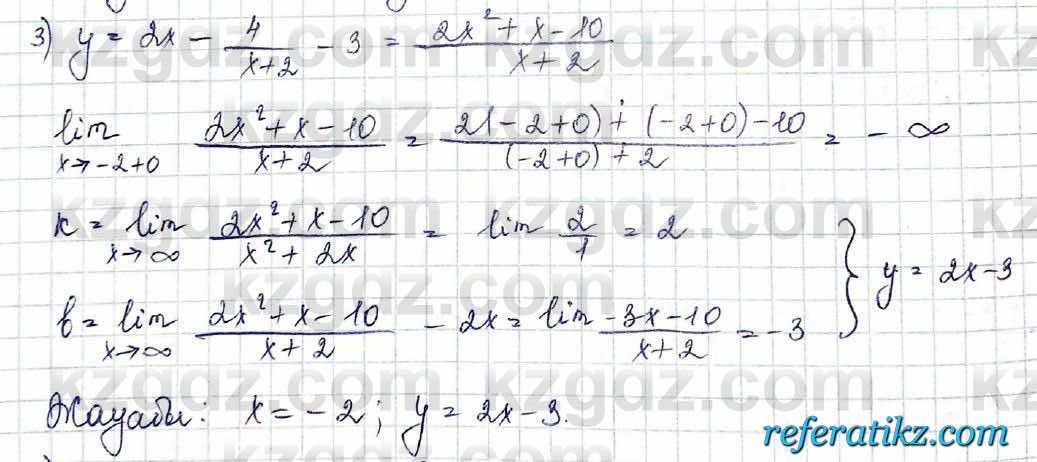 3) y = 2x - 4/(x+2) - 3 = (2x² + x - 10)/(x+2)
lim x→-2+0 (2x² + x - 10)/(x+2) = (2(-2+0) + (-2+0) - 10)/((-2+0) + 2) = -∞
k = lim x→∞ (2x² + x - 10)/(x² + 2x) = lim 2/1 = 2
b = lim x→∞ (2x² + x - 10)/(x+2) - 2x = lim (-3x - 10)/(x+2) = -3
} y = 2x-3
Жауабы: x = -2; y = 2x - 3.
kzgdz.com
referatikz.com